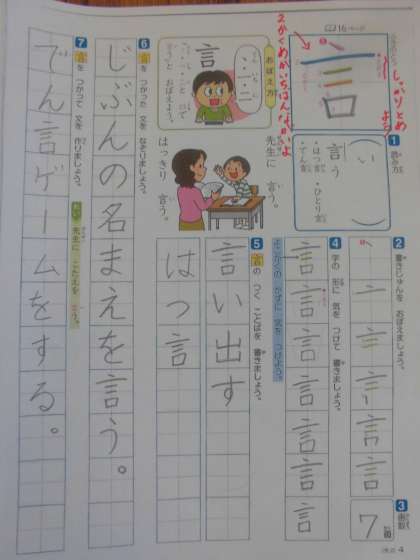 16ページ
2かくめがいちばんながいよ
しっかりとめよう
言
1 読み方
い
言う
・はつ言
・ひとり言
・でん言
おぼえ方
言
先生に
はっきり 言う。
2 書きじゅんを おぼえましょう。
3 画数
7画
4 字の 形に 気を つけて 書きましょう。
言言言言言言言
5 言の つく ことばを 書きましょう。
言い出す
はつ言
6 言を つかった 文を なぞりましょう。
じぶんの名まえを言う。
7 言を つかって 文を 作りましょう。
れい 先生に こたえを 言う。
でん言ゲームをする。
4